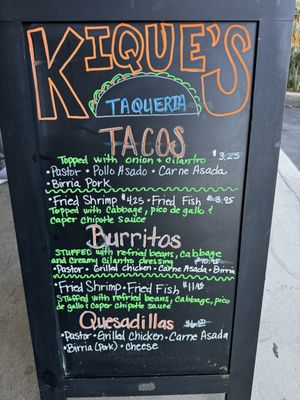 KIQUE'S
TAQUERIA
TACOS
Topped with onion & cilantro $3.25
·Pastor·Pollo Asado·Carne Asada
·Birria Pork
·Fried Shrimp $4.25·Fried Fish $3.95
Topped with cabbage, pico de gallo &
caper chipotle sauce
Burritos
STUFFED with refried beans, cabbage
and creamy cilantro dressing $10.95
·Pastor·Grilled Chicken·Carne Asada·Birria
·Fried Shrimp·Fried Fish $11.95
Stuffed with refried beans, cabbage, pico
de gallo & caper chipotle sauce
Quesadillas
·Pastor·Grilled Chicken·Carne Asada
·Birria (Pork)·Cheese